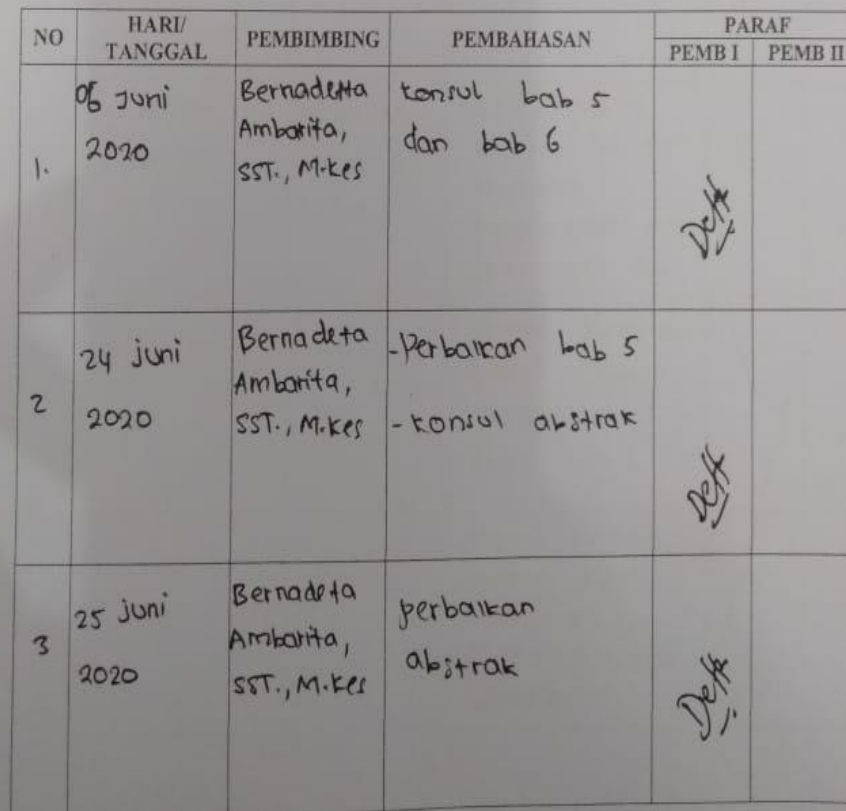 NO HARI/ TANGGAL PEMBIMBING PEMBAHASAN PARAF
PEMB I PEMB II
1. 06 Juni 2020 Bernadetta Ambarita, SST., M.Kes konsul bab 5 dan bab 6
2 24 juni 2020 Bernadeta Ambarita, SST., M.Kes -Perbaikan bab 5 - konsul abstrak
3 25 juni 2020 Bernadeta Ambarita, SST., M.Kes perbaikan abstrak